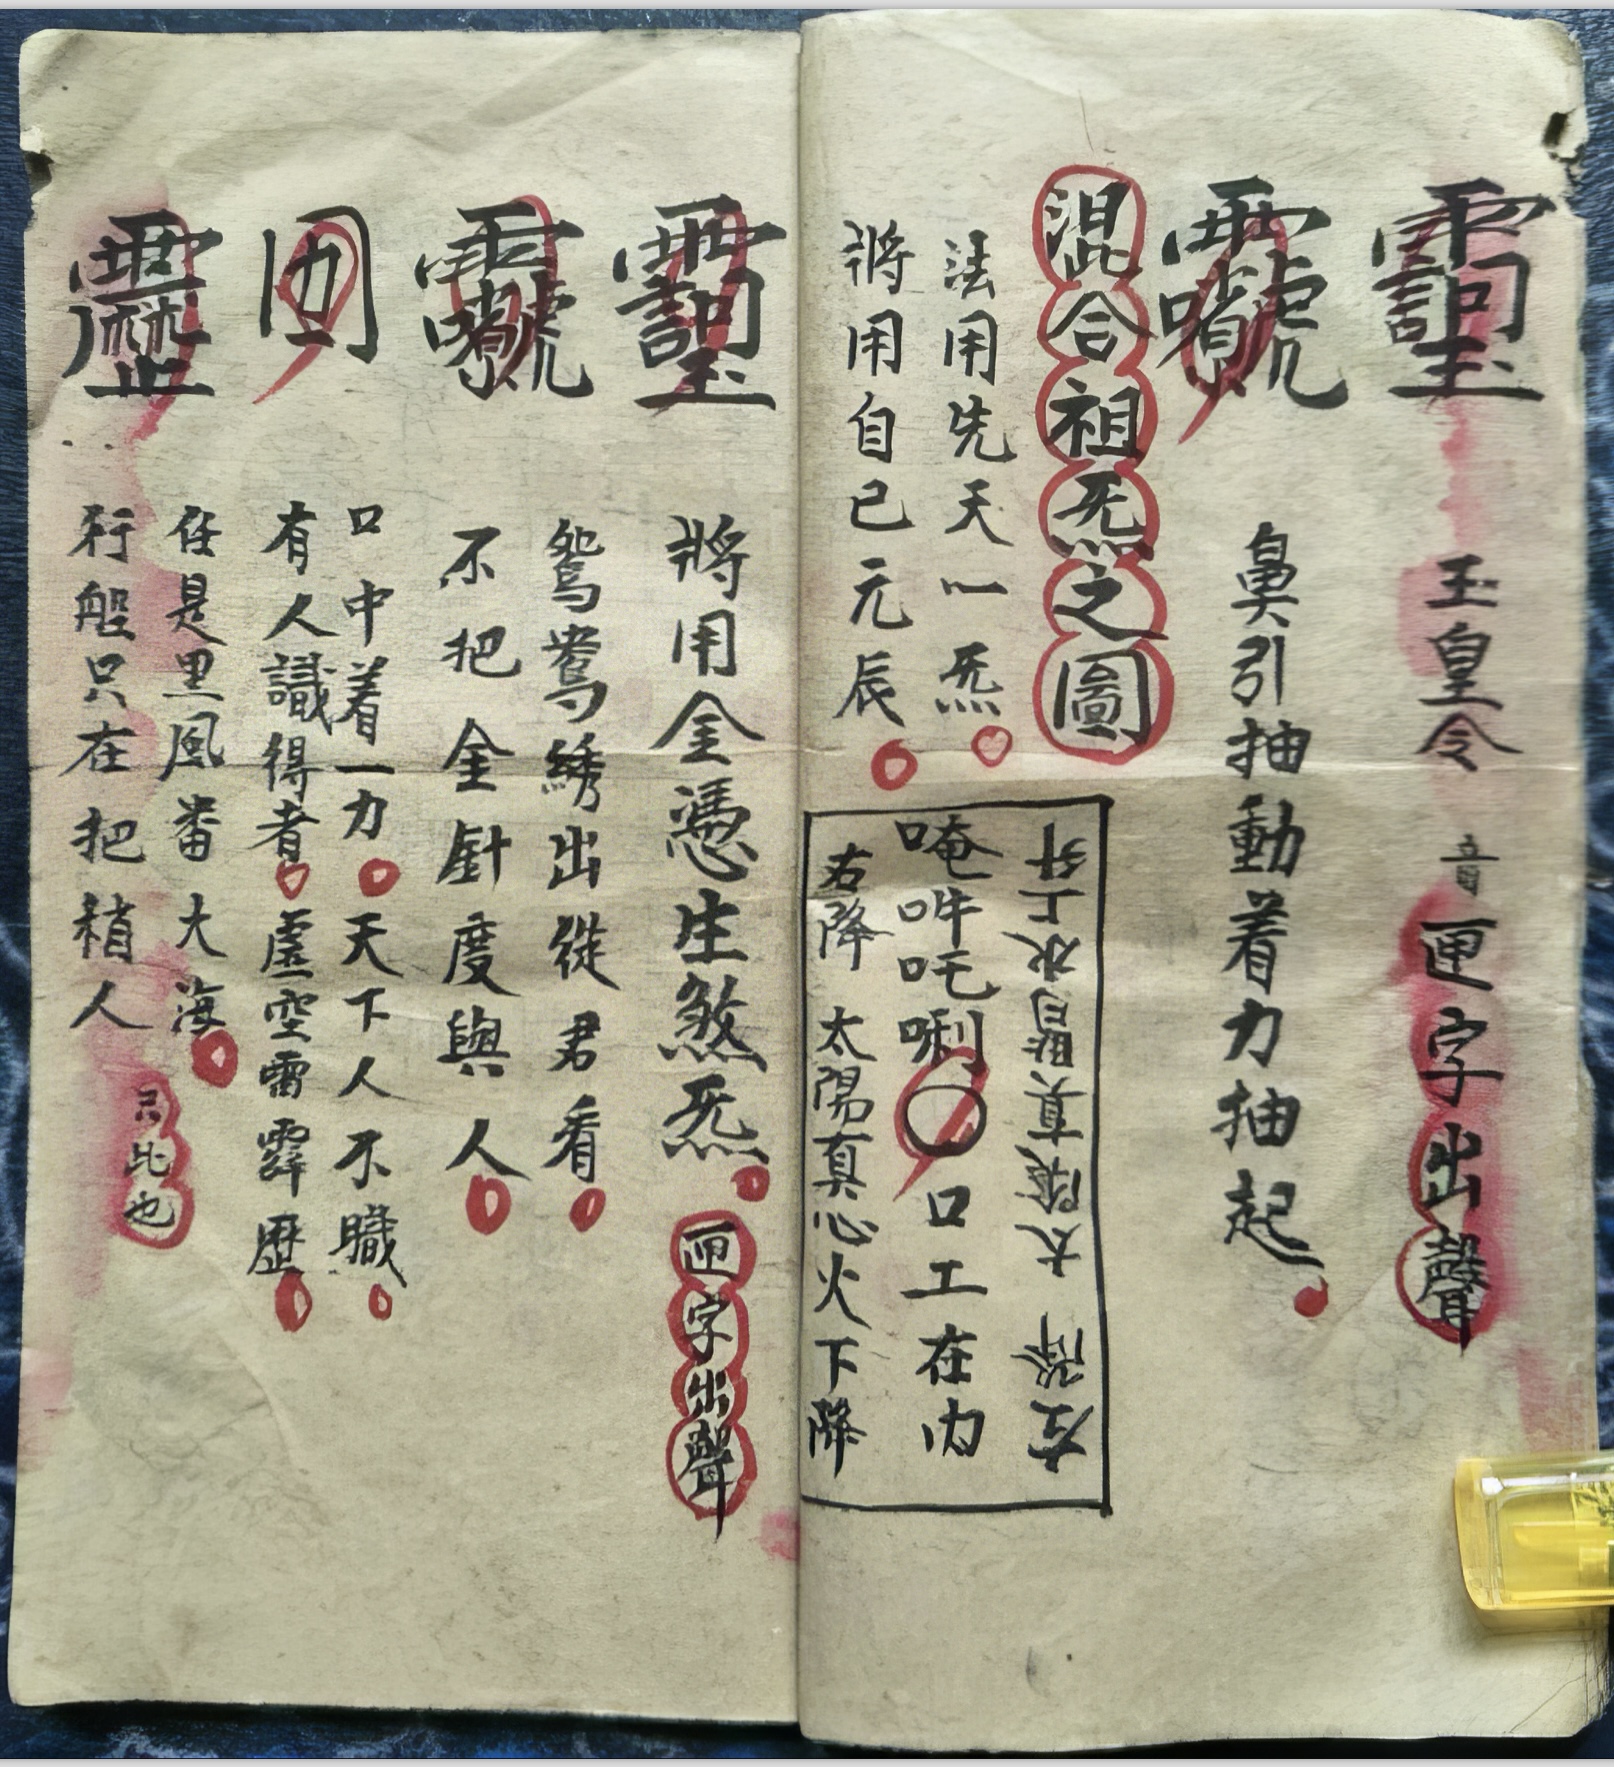 玉皇令 音匣字出聲
鼻引抽動着力抽起
混合祖炁之圖
法用先天一炁
將用自己元辰
左降 太陰真腎水上升
唵吽吒唎〇口工在内
右降 太陽真心火下降
將用金憑生煞炁 匣字出聲
鴛鴦綉出從君看
不把金針度與人
口中着一力天下人不職
有人識得者虛空雷霹歷
任是黑風番大海
行船只在把稍人
只此也